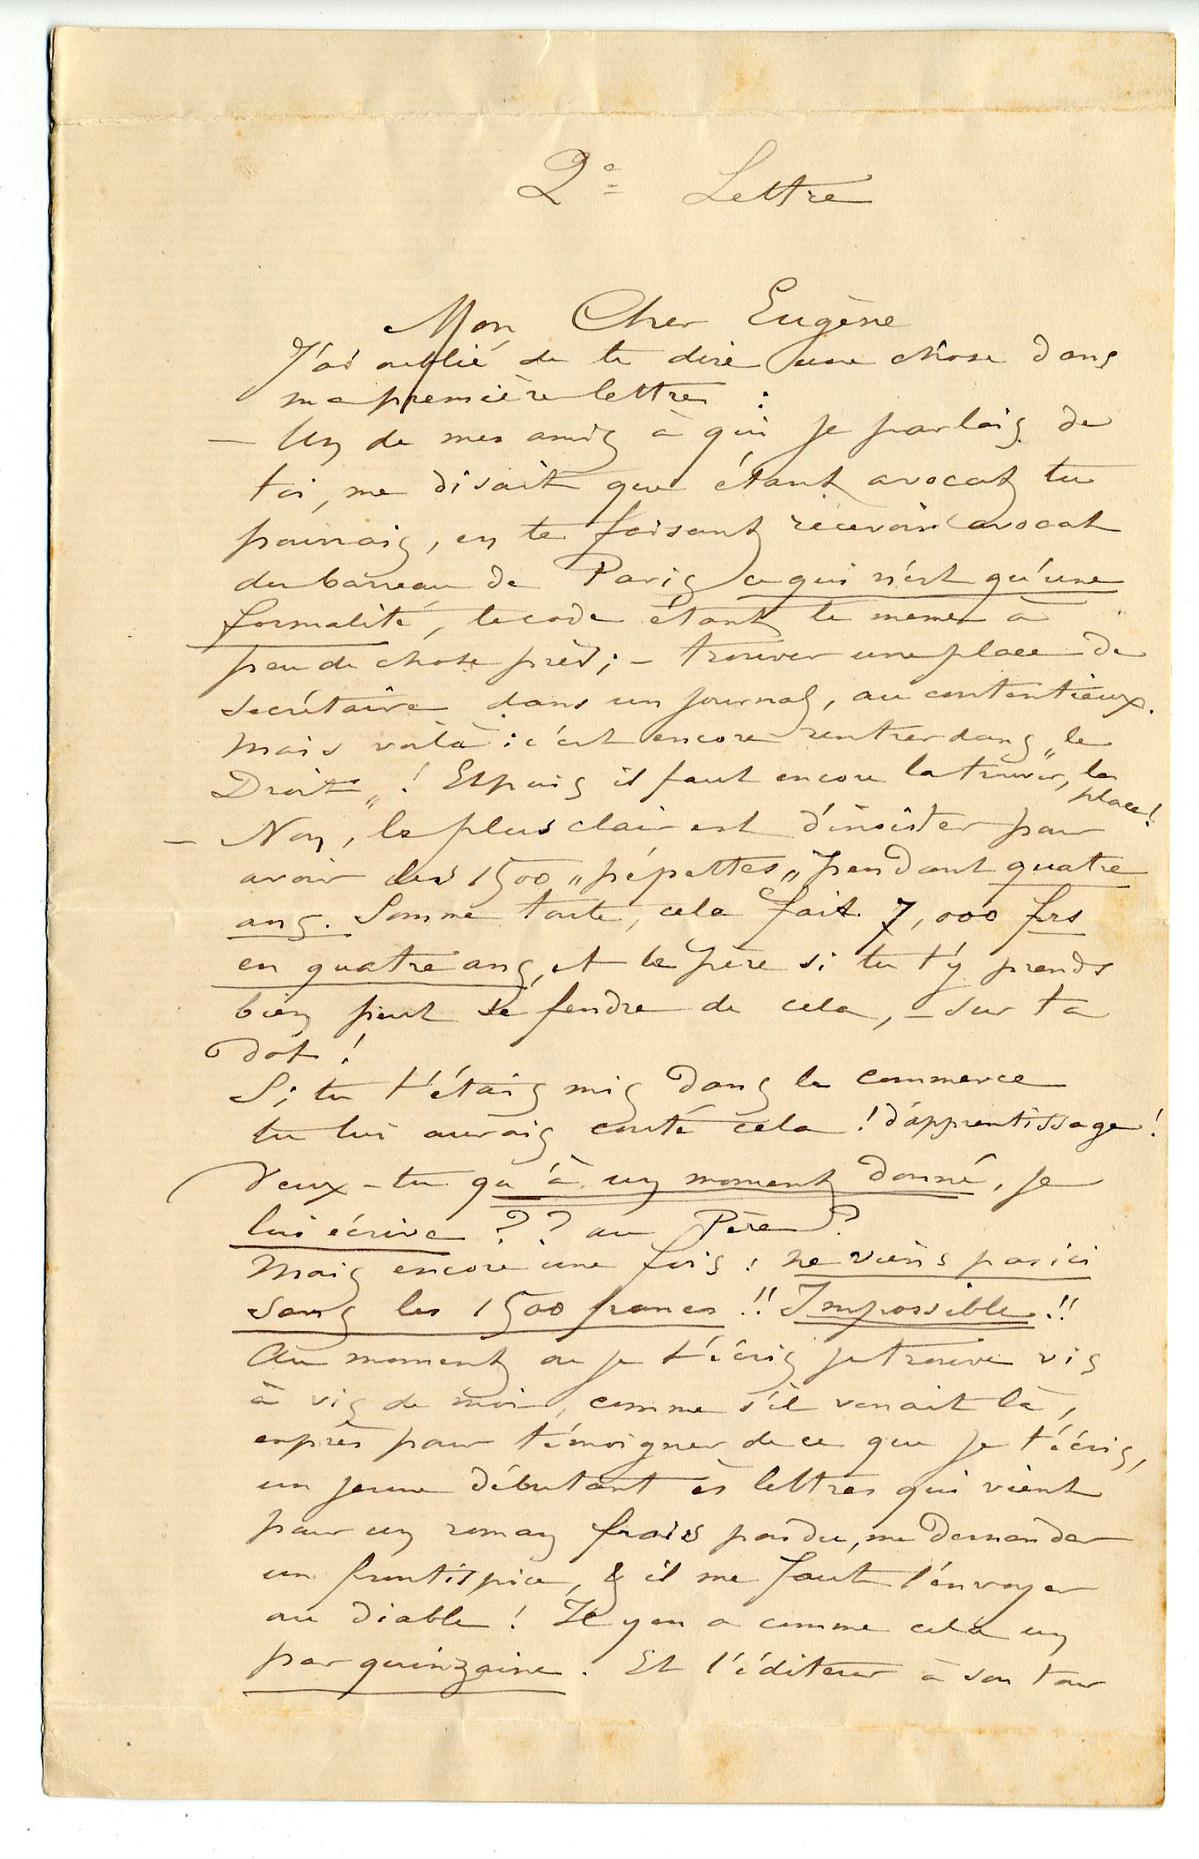 2e Lettre
Mon Cher Eugène
J'ai oublié de te dire une chose dans
ma première lettre :
— Un de mes amis à qui je parlais de
toi, me disait que étant avocat tu
pourrais, en te faisant recevoir avocat
du barreau de Paris ce qui n'est qu'une
formalité, le code étant le meme à
peu de chose près ; – trouver une place de
secrétaire dans un journal, au contentieux.
Mais voilà : c'est encore rentrer dans „le
Droit„ ! Et puis il faut encore la trouver, la
place !
— Non, le plus clair est d'insister pour
avoir les 1500 „pépettes„ pendant quatre
ans. Somme toute, cela fait 7,000 frs
en quatre ans, et le père si tu t'y prends
bien peut se fendre de cela, – sur ta
dot !
Si tu t'étais mis dans le commerce
tu lui aurais couté cela ! d'apprentissage !
Veux-tu qu'à un moment donné, je
lui écrive ?? au Père ?
Mais encore une fois : ne viens pas ici
sans les 1500 francs !! Impossible !!
Au moment ou je t'écris je trouve vis
à vis de moi, comme s'il venait là,
exprès pour témoigner de ce que je t'écris,
un jeune débutant ès lettres qui vient
pour un roman frais pondu, me demander
un frontispice, & il me faut l'envoyer
au diable ! Il y en a comme cela un
par quinzaine. Et l'éditeur à son tour